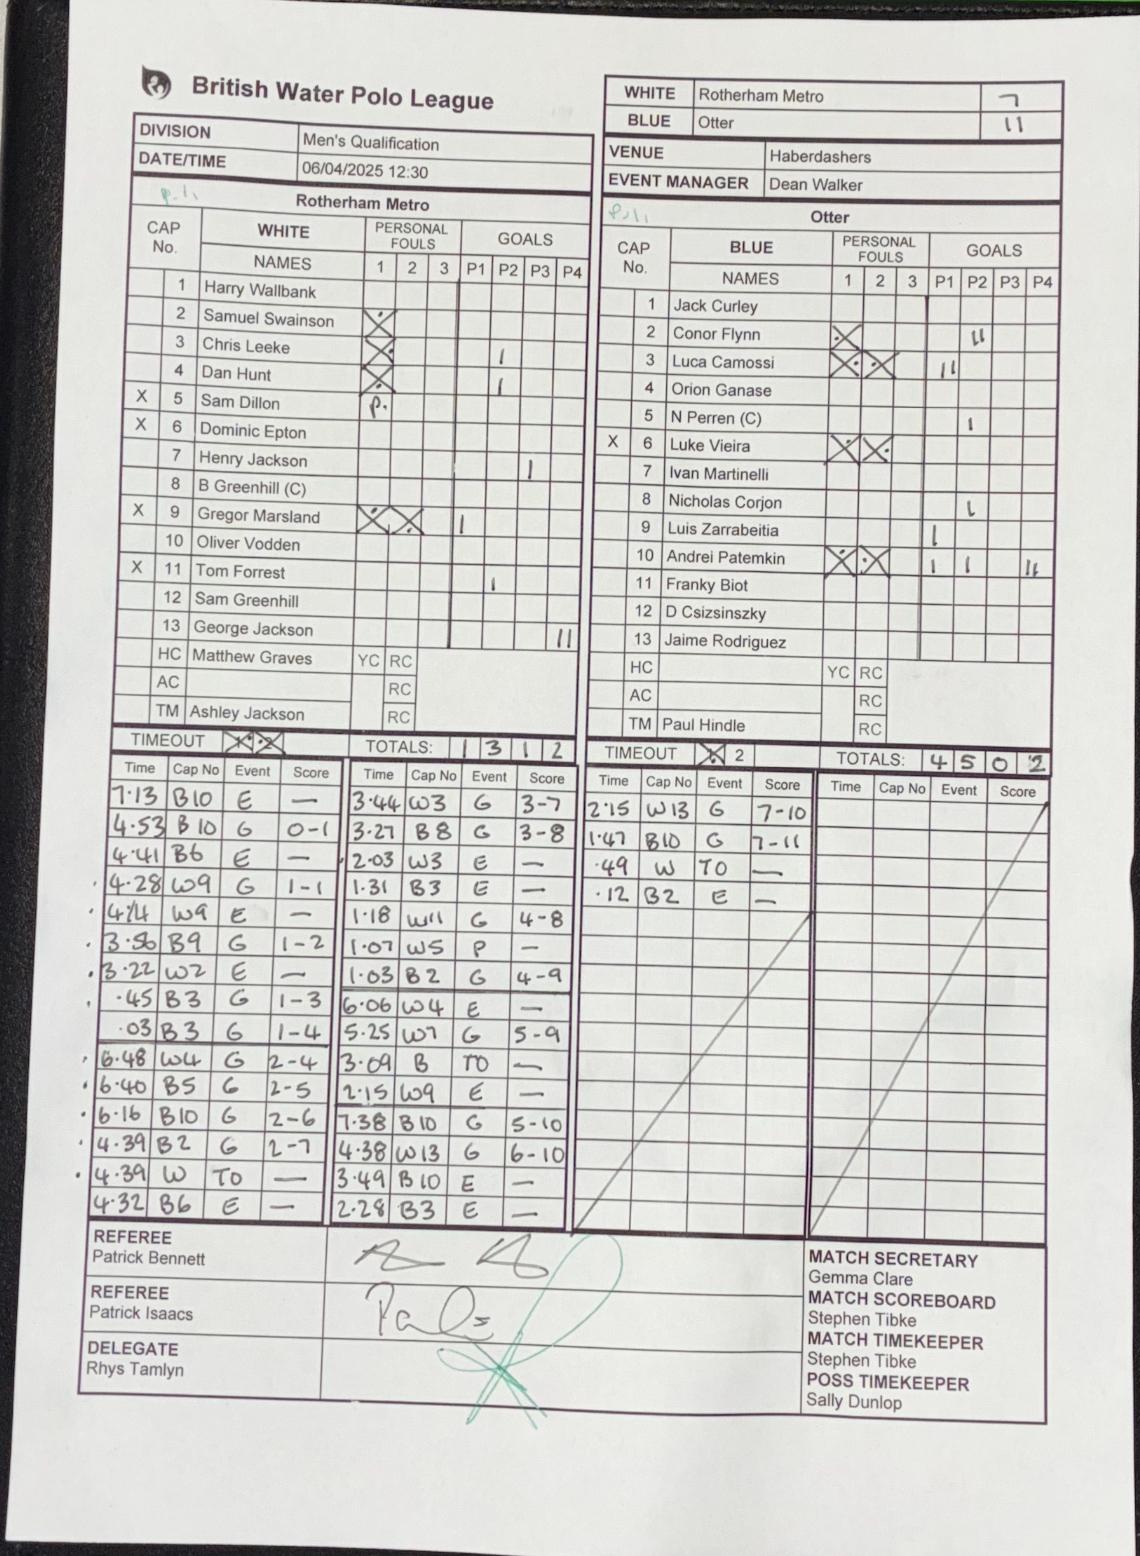 British Water Polo League
DIVISION Men's Qualification
DATE/TIME 06/04/2025 12:30
WHITE Rotherham Metro 7
BLUE Otter 11
VENUE Haberdashers
EVENT MANAGER Dean Walker
Rotherham Metro
CAP No. WHITE PERSONAL FOULS GOALS
NAMES 1 2 3 P1 P2 P3 P4
1 Harry Wallbank
2 Samuel Swainson
3 Chris Leeke I
4 Dan Hunt I
X 5 Sam Dillon P.
X 6 Dominic Epton
7 Henry Jackson I
8 B Greenhill (C)
X 9 Gregor Marsland I
10 Oliver Vodden
X 11 Tom Forrest I
12 Sam Greenhill
13 George Jackson II
HC Matthew Graves YC RC
AC RC
TM Ashley Jackson RC
TIMEOUT 1 2 TOTALS: 1 3 1 2
Otter
CAP No. BLUE PERSONAL FOULS GOALS
NAMES 1 2 3 P1 P2 P3 P4
1 Jack Curley
2 Conor Flynn II
3 Luca Camossi II
4 Orion Ganase
5 N Perren (C) I
X 6 Luke Vieira
7 Ivan Martinelli
8 Nicholas Corjon I
9 Luis Zarrabeitia I
10 Andrei Patemkin I I II
11 Franky Biot
12 D Csizsinszky
13 Jaime Rodriguez
HC YC RC
AC RC
TM Paul Hindle RC
TIMEOUT 1 2 TOTALS: 4 5 0 2
Time Cap No Event Score
7.13 B10 E —
4.53 B10 G 0-1
4.41 B6 E —
4.28 W9 G 1-1
4.14 W9 E —
3.56 B9 G 1-2
3.22 W2 E —
.45 B3 G 1-3
.03 B3 G 1-4
6.48 W4 G 2-4
6.40 B5 G 2-5
6.16 B10 G 2-6
4.39 B2 G 2-7
4.39 W TO —
4.32 B6 E —
Time Cap No Event Score
3.44 W3 G 3-7
3.27 B8 G 3-8
2.03 W3 E —
1.31 B3 E —
1.18 W11 G 4-8
1.07 W5 P —
1.03 B2 G 4-9
6.06 W4 E —
5.25 W7 G 5-9
3.09 B TO —
2.15 W9 E —
7.38 B10 G 5-10
4.38 W13 G 6-10
3.49 B10 E —
2.28 B3 E —
Time Cap No Event Score
2.15 W13 G 7-10
1.47 B10 G 7-11
.49 W TO —
.12 B2 E —
Time Cap No Event Score
REFEREE
Patrick Bennett
REFEREE
Patrick Isaacs
DELEGATE
Rhys Tamlyn
MATCH SECRETARY
Gemma Clare
MATCH SCOREBOARD
Stephen Tibke
MATCH TIMEKEEPER
Stephen Tibke
POSS TIMEKEEPER
Sally Dunlop